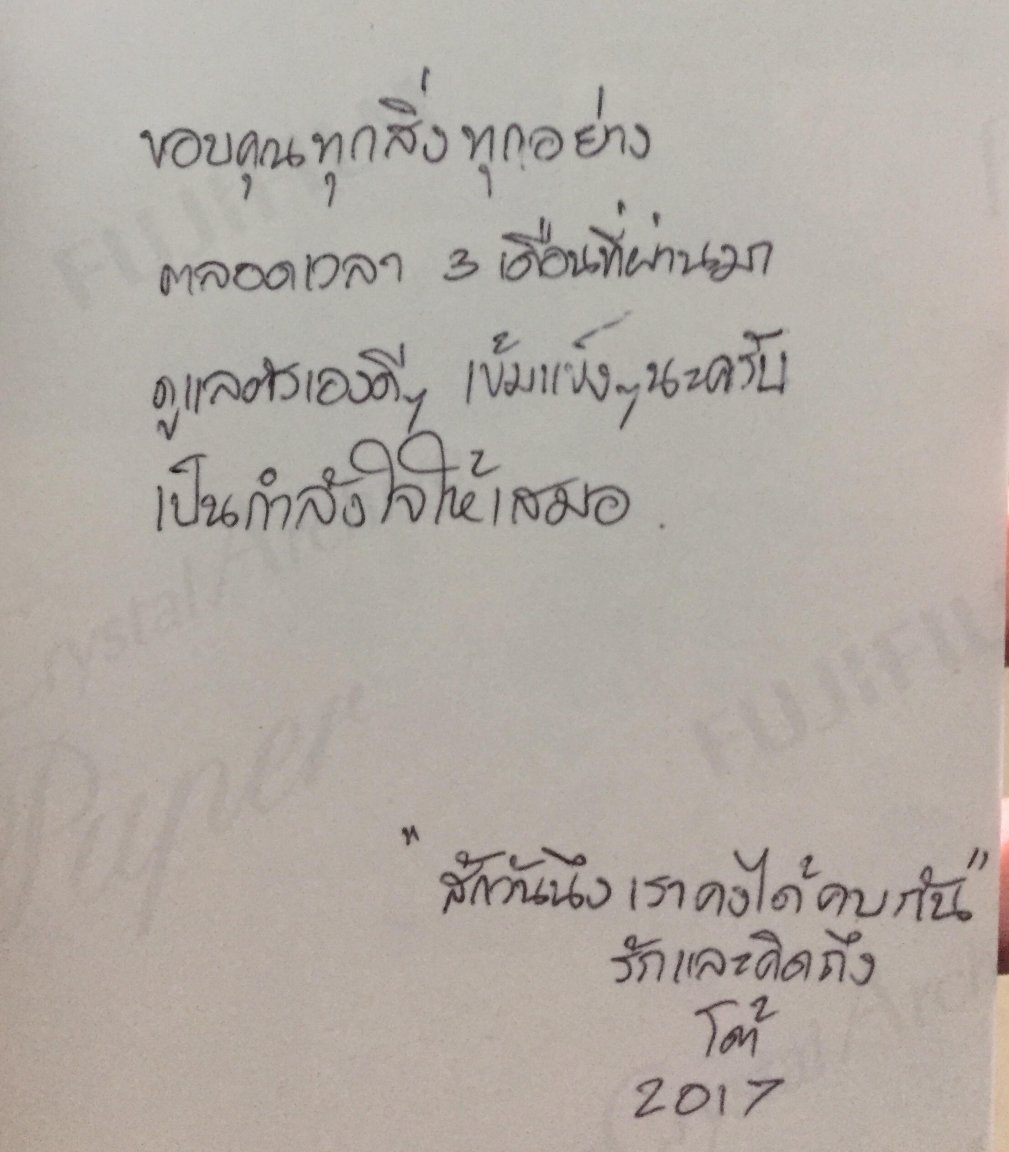 ขอบคุณทุกสิ่งทุกอย่าง
ตลอดเวลา 3 เดือนที่ผ่านมา
ดูแลตัวเองดีๆ เข้มแข็งๆนะครับ
เป็นกำลังใจให้เสมอ.
FUJIFILM
Crystal Archive
FUJIFILM
Paper
"สักวันนึง เราคงได้คบกัน"
รักและคิดถึง
โต้
2017
Crystal Archive